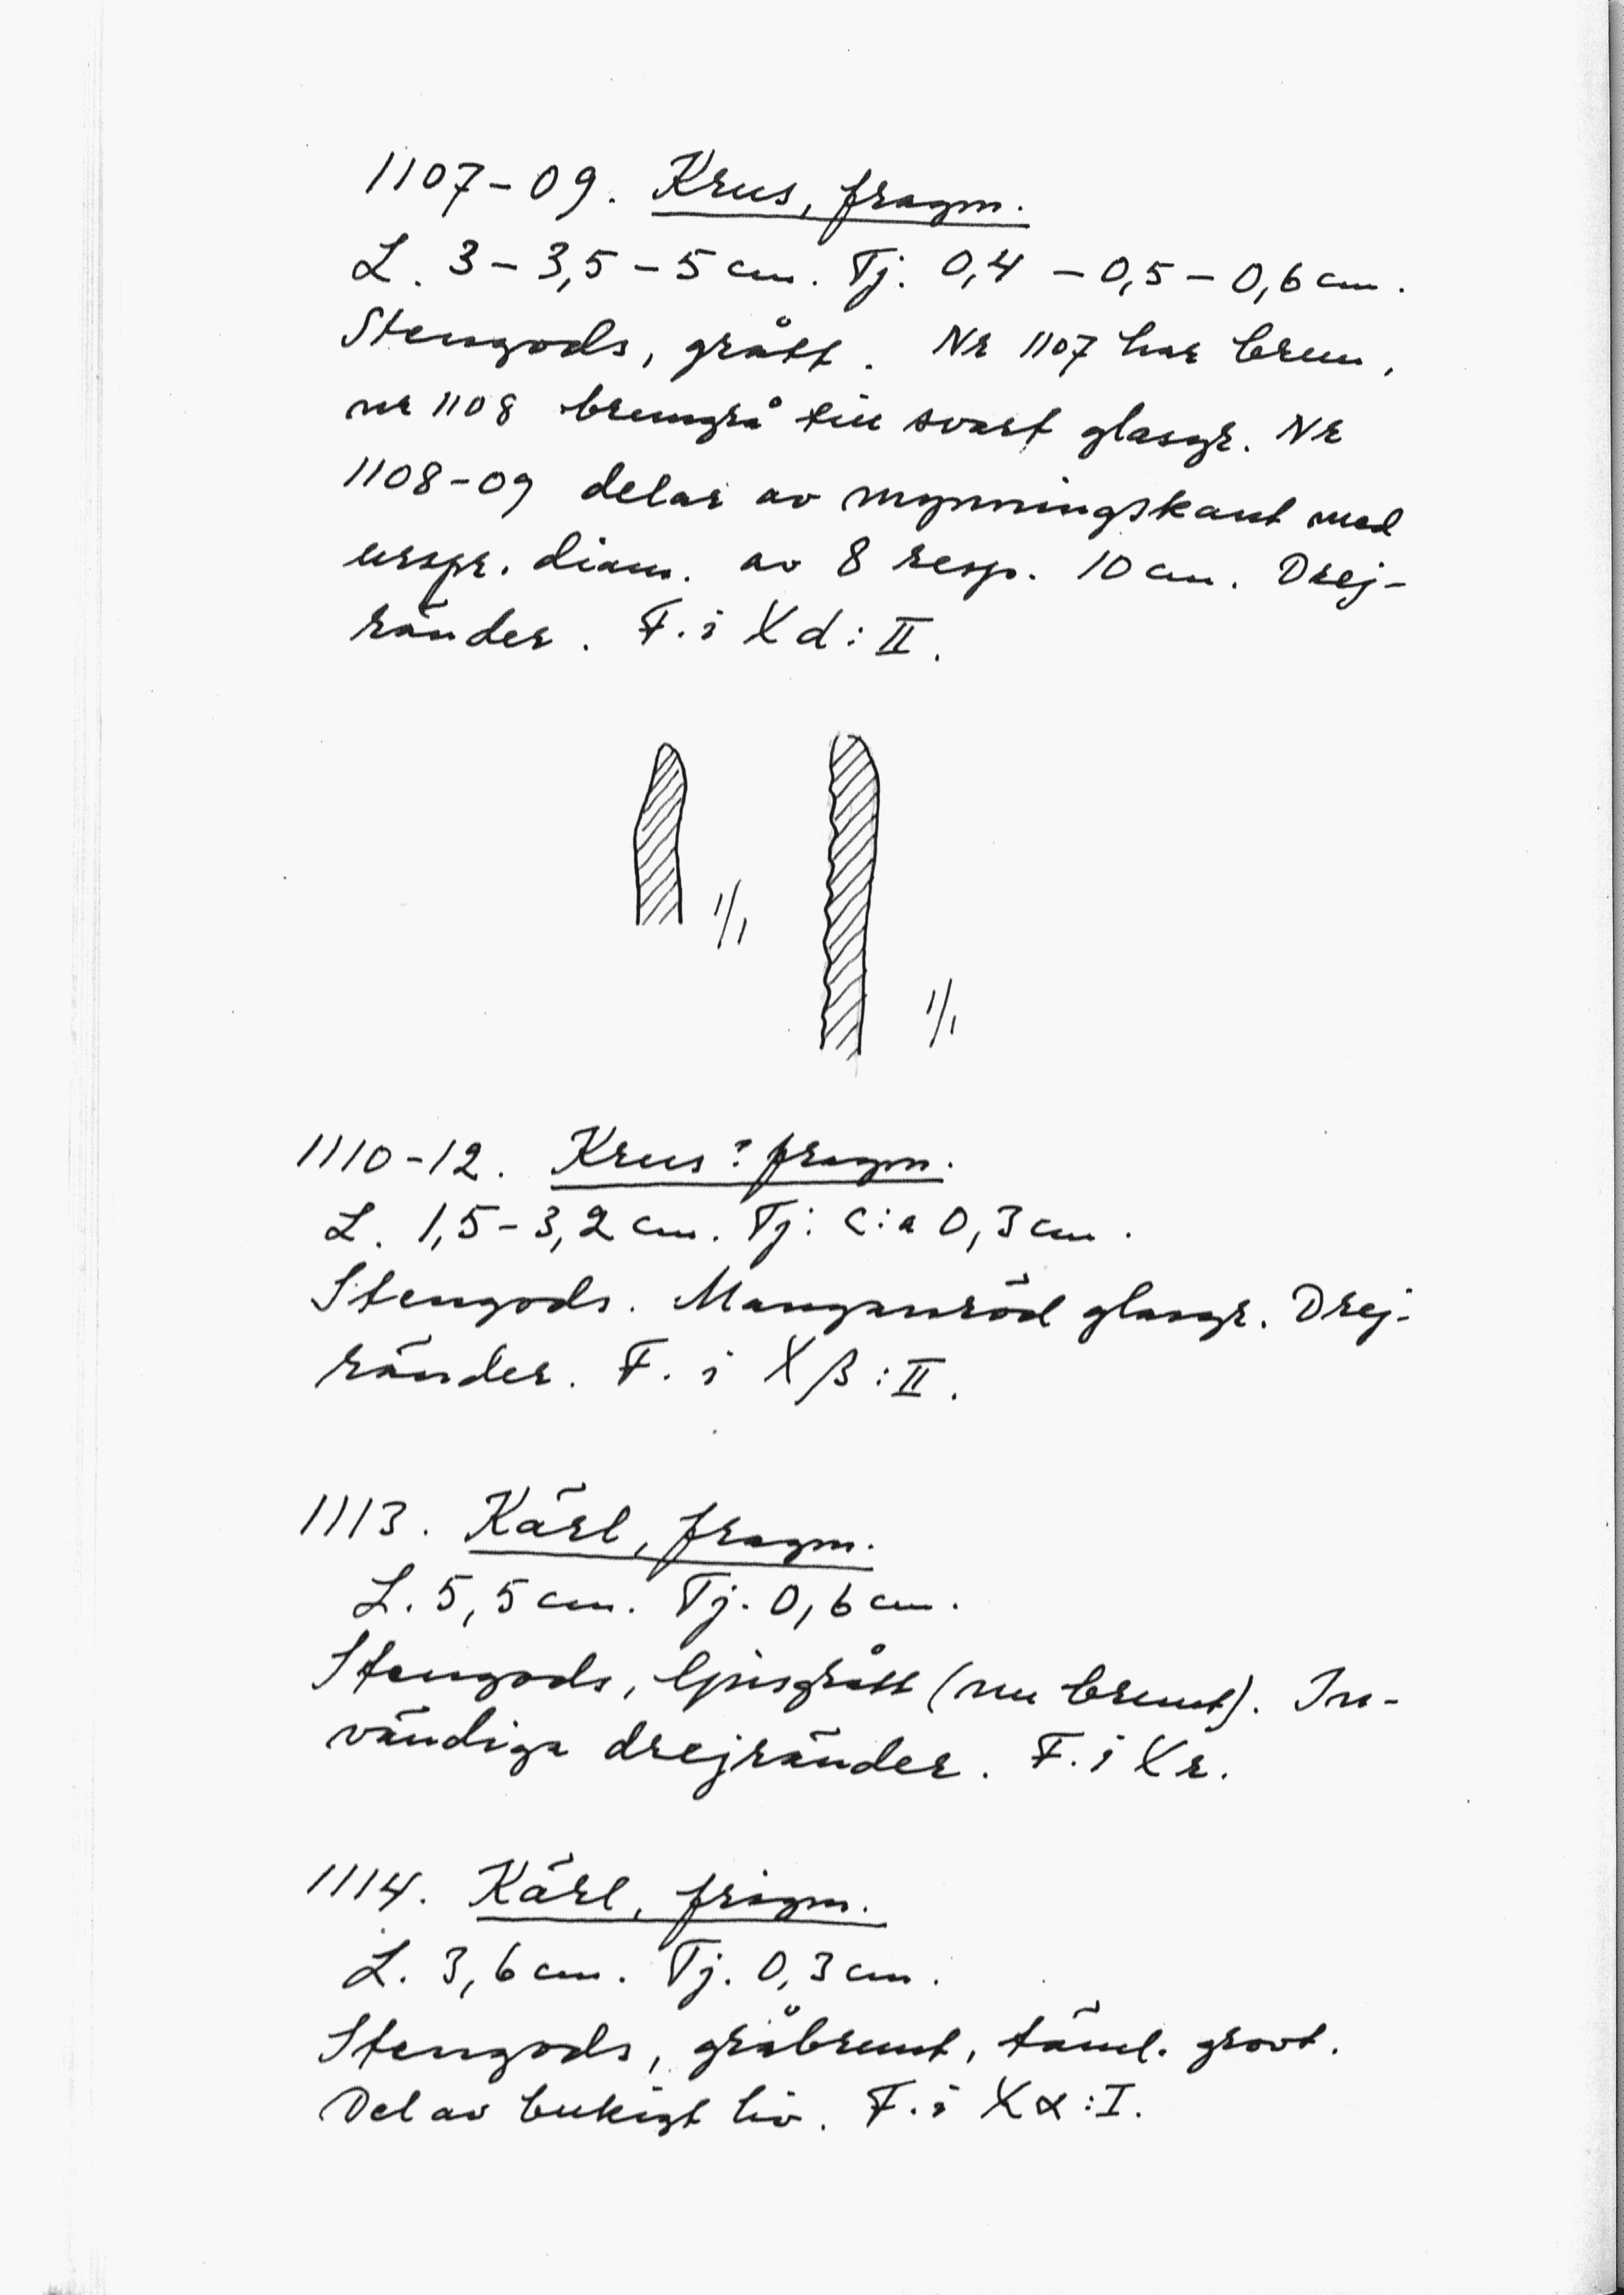 1107-09. Krus, fragm.
L. 3-3,5-5 cm. Tj. 0,4-0,5-0,6 cm.
Stengods, grått. Nr 1107 har brun,
nr 1108 brungrå till svart glasyr. Nr
1108-09 delar av mynningskant med
urspr. diam. av 8 resp. 10 cm. Drej-
ränder. F. i X d:II.
1/1
1/1
1110-12. Krus? fragm.
L. 1,5-3,2 cm. Tj: c:a 0,3 cm.
Stengods. Manganröd glasyr. Drej-
ränder. F. i X β:II.
1113. Kärl, fragm.
L. 5,5 cm. Tj. 0,6 cm.
Stengods, ljusgrått (nu brunt). In-
vändiga drejränder. F. i X r.
1114. Kärl, fragm.
L. 3,6 cm. Tj. 0,3 cm.
Stengods, gråbrunt, täml. grovt.
Del av bukigt liv. F. i X α:I.